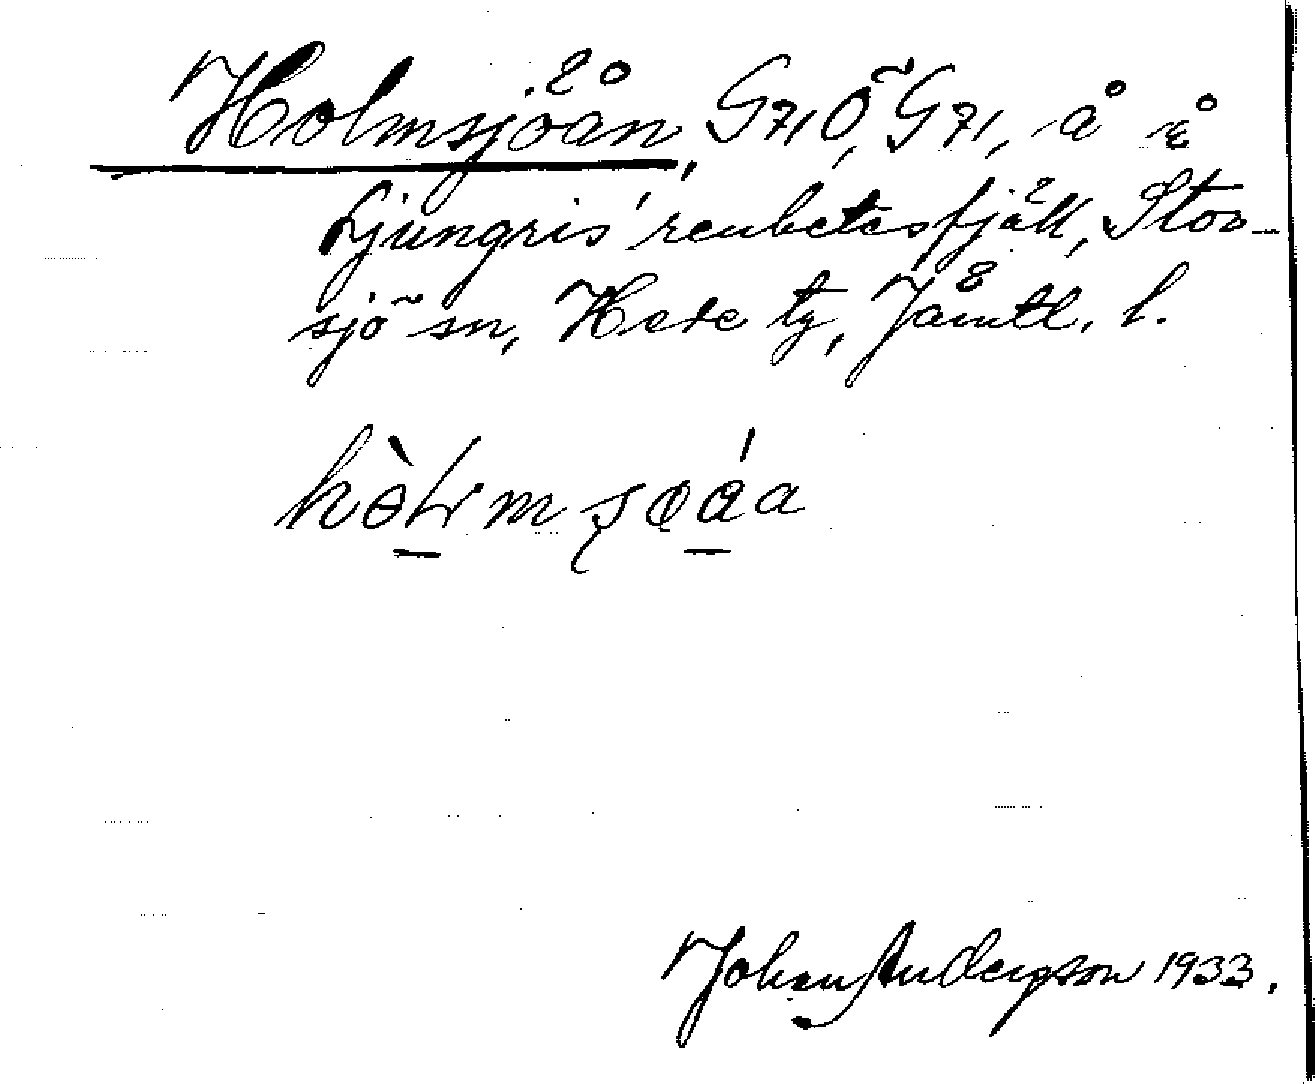 Holmsjöån, G71, Ö G71, å å
Ljungris' renbetesfjäll, Stor-
sjö sn, Here tg, Jämtl. l.
Johan Anderson 1933.